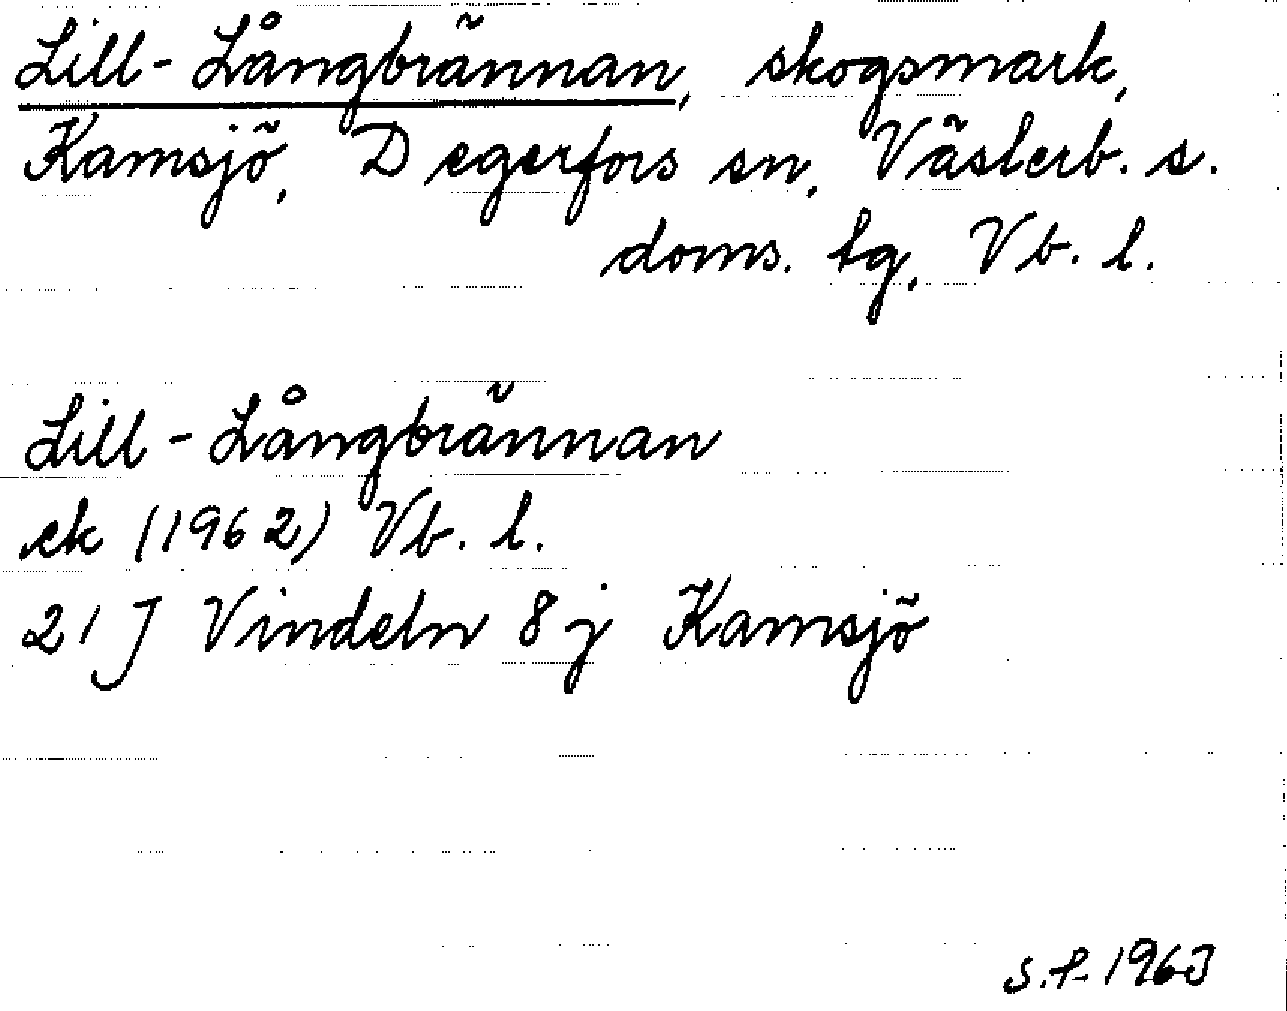 Lill-Långbrännan, skogsmark,
Kamsjö, Degerfors sn, Västerb. s.
doms. tg, Vb. l.
Lill-Långbrännan
ek (1962) Vb. l.
21 J Vindeln 8 j Kamsjö
S.F. 1963